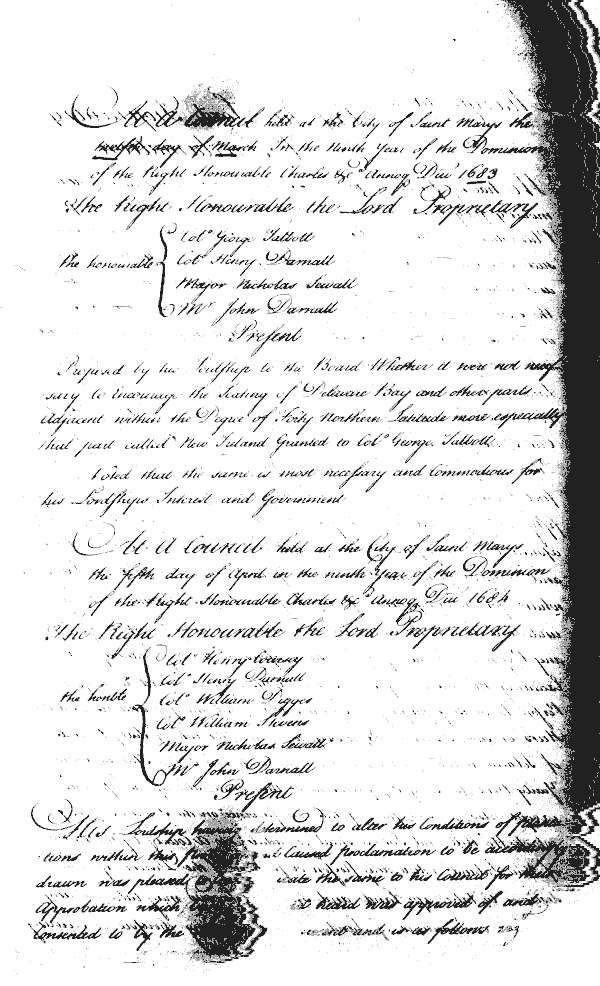 At A Council held at the City of Saint Marys the
twelfth day of March In the Ninth Year of the Dominion
of the Right Honourable Charles &c.ᵃ Annoq Dni 1683
The Right Honourable the Lord Proprietary
Colº George Talbott
the honourable Colº Henry Darnall
Major Nicholas Sewall
Mʳ John Darnall
Present
Proposed by his Lordship to the Board Whether it were not necesſ
sary to Encourage the Seating of Delaware Bay and other parts
Adjacent within the Degree of Forty Northern Latitude more especially
that part called New Ireland Granted to Colº George Talbott
Voted that the same is most necesſary and Commodious for
his Lordships Interest and Government
At A Council held at the City of Saint Marys
the fifth day of April in the ninth Year of the Dominion
of the Right Honourable Charles &cᵃ Annoq Dni 1684
The Right Honourable the Lord Proprietary
Colº Henry Coursey
Colº Henry Darnall
the honble Colº William Digges
Colº William Stevens
Major Nicholas Sewall
Mʳ John Darnall
Preſent
His Lordship having determined to alter his Conditions of planta
tions within this Caused proclamation to be accordingly
drawn was pleased the same to his Council for their
Approbation which heard was approved of and
Consented to by the and is as follows vizᵗ